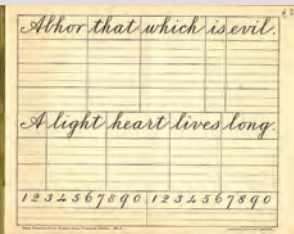 Abhor that which is evil.
A light heart lives long.
1 2 3 4 5 6 7 8 9 0 1 2 3 4 5 6 7 8 9 0